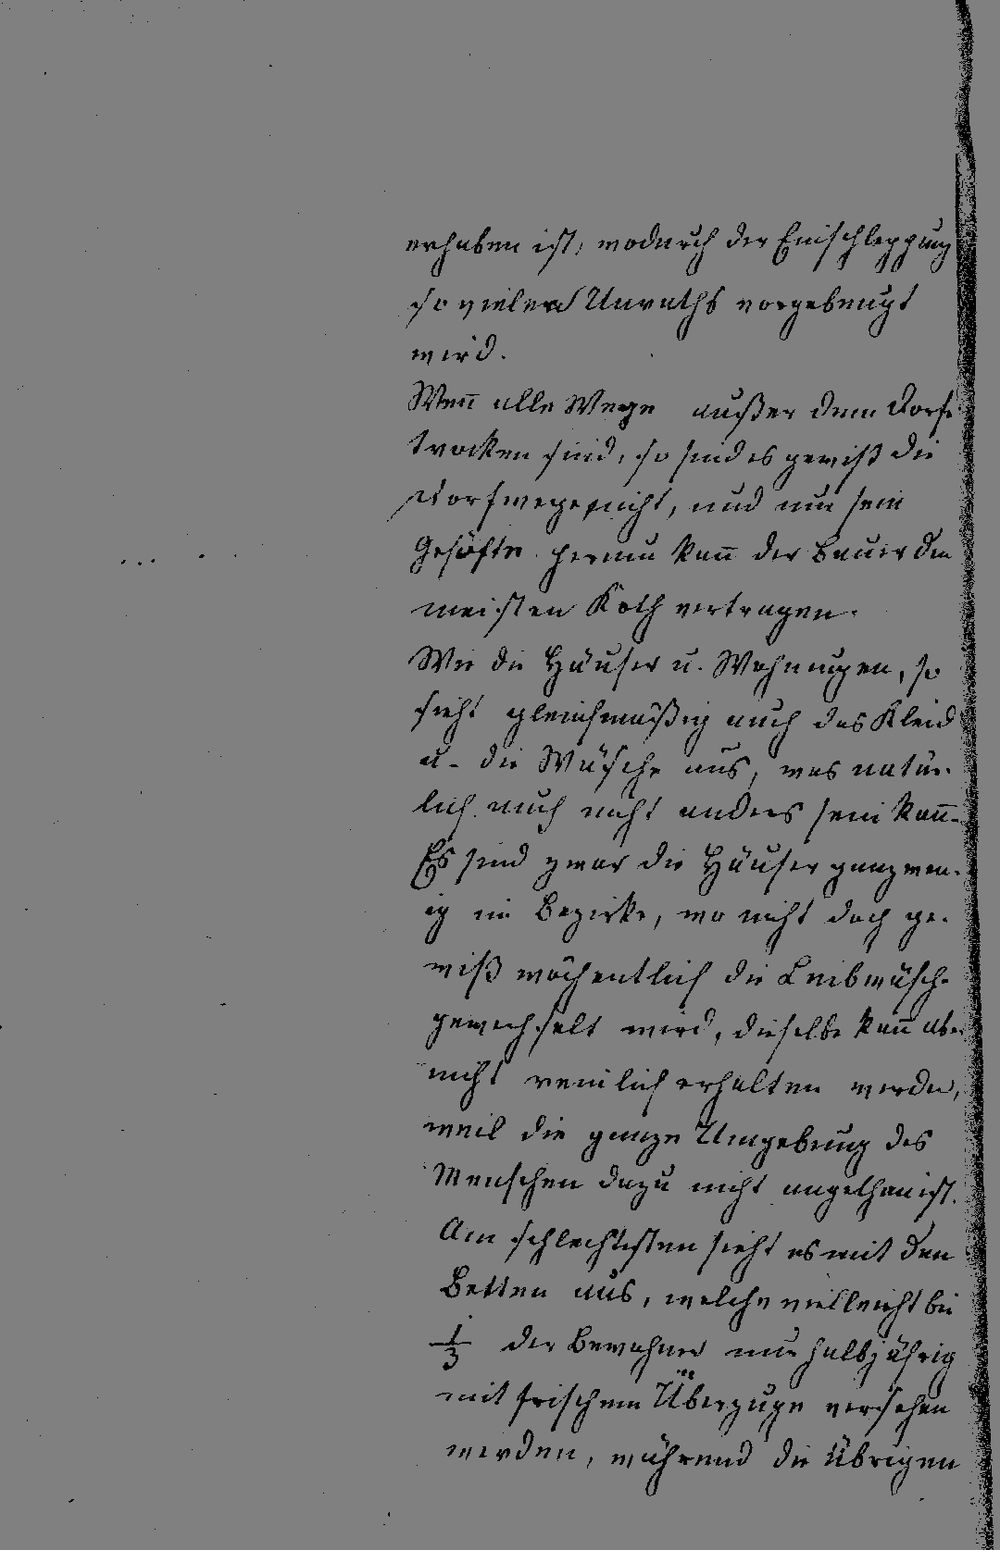 erhaben ist, wodurch der Einschleppung
so vielen Unraths vorgebeugt
wird.
Wen̄ alle Wege außer dem Dorfe
trocken sind, so sind es gewiß die
Dorfwege nicht, und nur sein
Gehöfte herum kan̄ der Bauer den
meisten Koth vertragen.
Wie die Häuser u. Wohnungen, so
sieht gleichmäßig auch das Kleid
u. die Wäsche aus, was natür-
lich auch nicht anders sein kan̄.
Es sind zwar die Häuser ganz wen-
ig im Bezirke, wo nicht doch ge-
wiß wöchentlich die Leibwäsche
gewechselt wird, dieselbe kan̄ aber
nicht reinlich erhalten werden,
weil die ganze Umgebung des
Menschen dazu nicht angethan ist.
Am schlechtesten sieht es mit den
Betten aus, welche vielleicht bei
1/3 der Bewohner nur halbjährig
mit frischem Überzuge versehen
werden, während die Übrigen